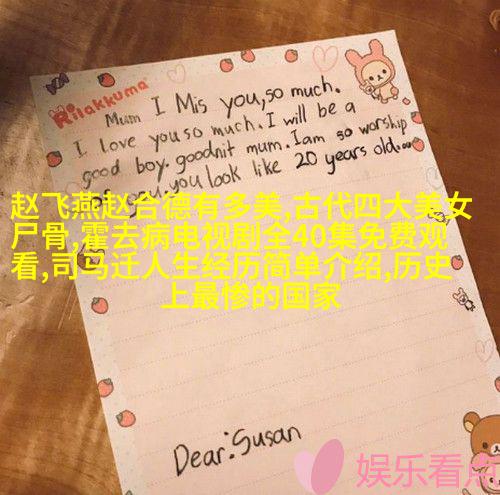 Rilakkuma
Mum I Mis you,so much.
I love you so much. I will be a
good boy. goodnit mum. I am so worship
you.you look like 20 years old...
赵飞燕赵合德有多美,古代四大美女
尸骨,霍去病电视剧全40集免费观
看,司马迁人生经历简单介绍,历史
上最惨的国家
Dear:Susan
娱乐看点